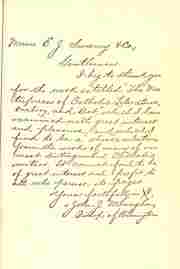 Messrs E. J. Swarny & Co,
Gentlemen
I beg to thank you
for the work entitled The
of Catholic Literature,
Oratory, and Art, which I have
examined with great interest
and pleasure, and which I
find to be a choice
from the works of many of our
most distinguished Catholic
writers. It cannot fail to be
of great interest and profit to
all who peruse its pages
Yours faithfully in X,
John J. Monaghan,
Bishop of Wilmington